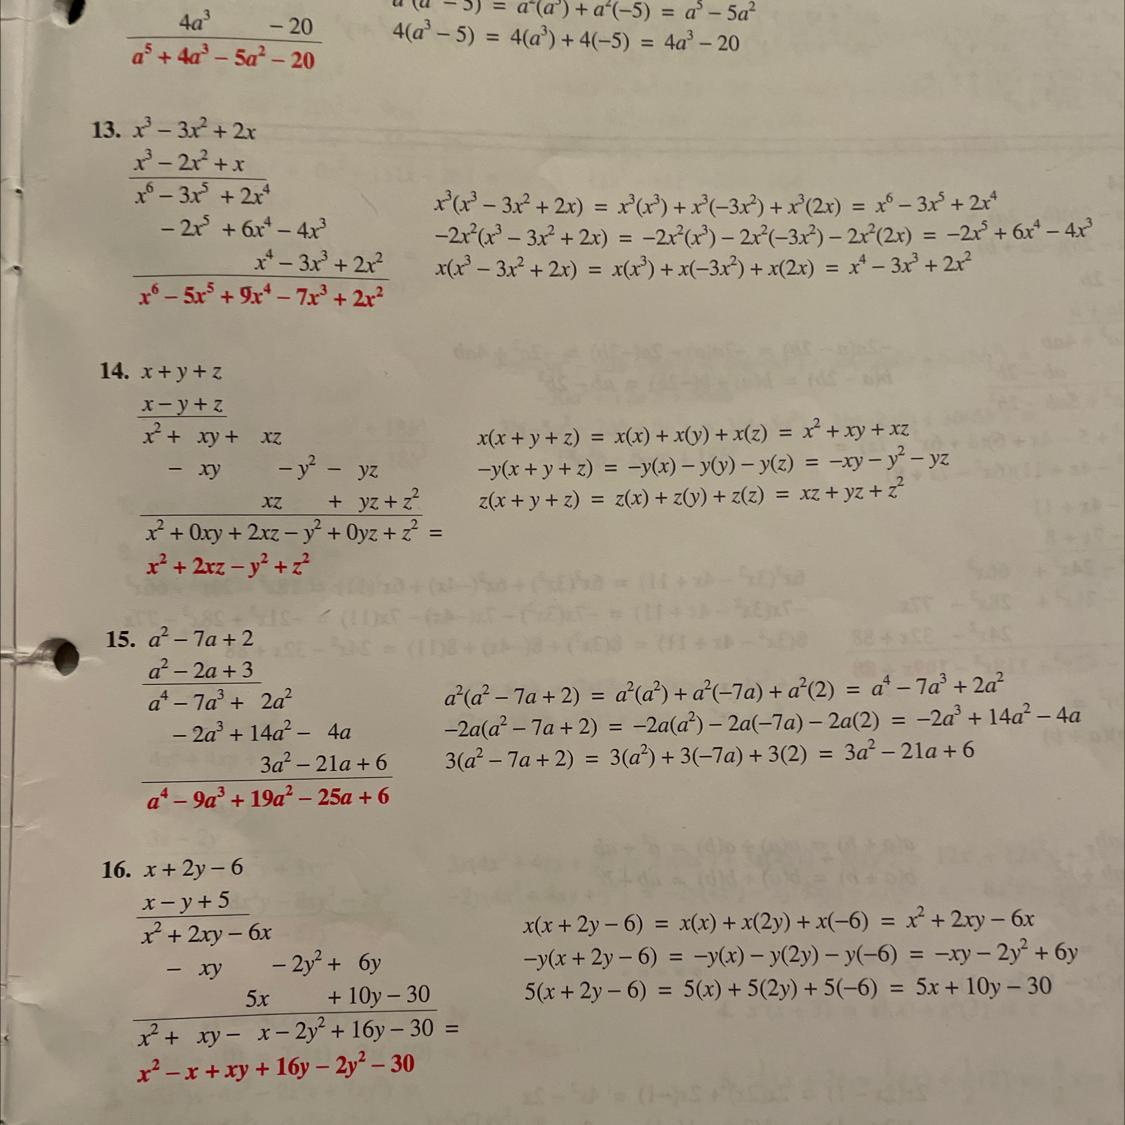 4a³ − 20
a⁵ + 4a³ − 5a² − 20
− 5) = a²(a³) + a²(−5) = a⁵ − 5a²
4(a³ − 5) = 4(a³) + 4(−5) = 4a³ − 20
13. x³ − 3x² + 2x
x³ − 2x² + x
x⁶ − 3x⁵ + 2x⁴
− 2x⁵ + 6x⁴ − 4x³
x⁴ − 3x³ + 2x²
x⁶ − 5x⁵ + 9x⁴ − 7x³ + 2x²
x³(x³ − 3x² + 2x) = x³(x³) + x³(−3x²) + x³(2x) = x⁶ − 3x⁵ + 2x⁴
−2x²(x³ − 3x² + 2x) = −2x²(x³) − 2x²(−3x²) − 2x²(2x) = −2x⁵ + 6x⁴ − 4x³
x(x³ − 3x² + 2x) = x(x³) + x(−3x²) + x(2x) = x⁴ − 3x³ + 2x²
14. x + y + z
x − y + z
x² + xy + xz
− xy − y² − yz
xz + yz + z²
x² + 0xy + 2xz − y² + 0yz + z² =
x² + 2xz − y² + z²
x(x + y + z) = x(x) + x(y) + x(z) = x² + xy + xz
−y(x + y + z) = −y(x) − y(y) − y(z) = −xy − y² − yz
z(x + y + z) = z(x) + z(y) + z(z) = xz + yz + z²
15. a² − 7a + 2
a² − 2a + 3
a⁴ − 7a³ + 2a²
− 2a³ + 14a² − 4a
3a² − 21a + 6
a⁴ − 9a³ + 19a² − 25a + 6
a²(a² − 7a + 2) = a²(a²) + a²(−7a) + a²(2) = a⁴ − 7a³ + 2a²
−2a(a² − 7a + 2) = −2a(a²) − 2a(−7a) − 2a(2) = −2a³ + 14a² − 4a
3(a² − 7a + 2) = 3(a²) + 3(−7a) + 3(2) = 3a² − 21a + 6
16. x + 2y − 6
x − y + 5
x² + 2xy − 6x
− xy − 2y² + 6y
5x + 10y − 30
x² + xy − x − 2y² + 16y − 30 =
x² − x + xy + 16y − 2y² − 30
x(x + 2y − 6) = x(x) + x(2y) + x(−6) = x² + 2xy − 6x
−y(x + 2y − 6) = −y(x) − y(2y) − y(−6) = −xy − 2y² + 6y
5(x + 2y − 6) = 5(x) + 5(2y) + 5(−6) = 5x + 10y − 30